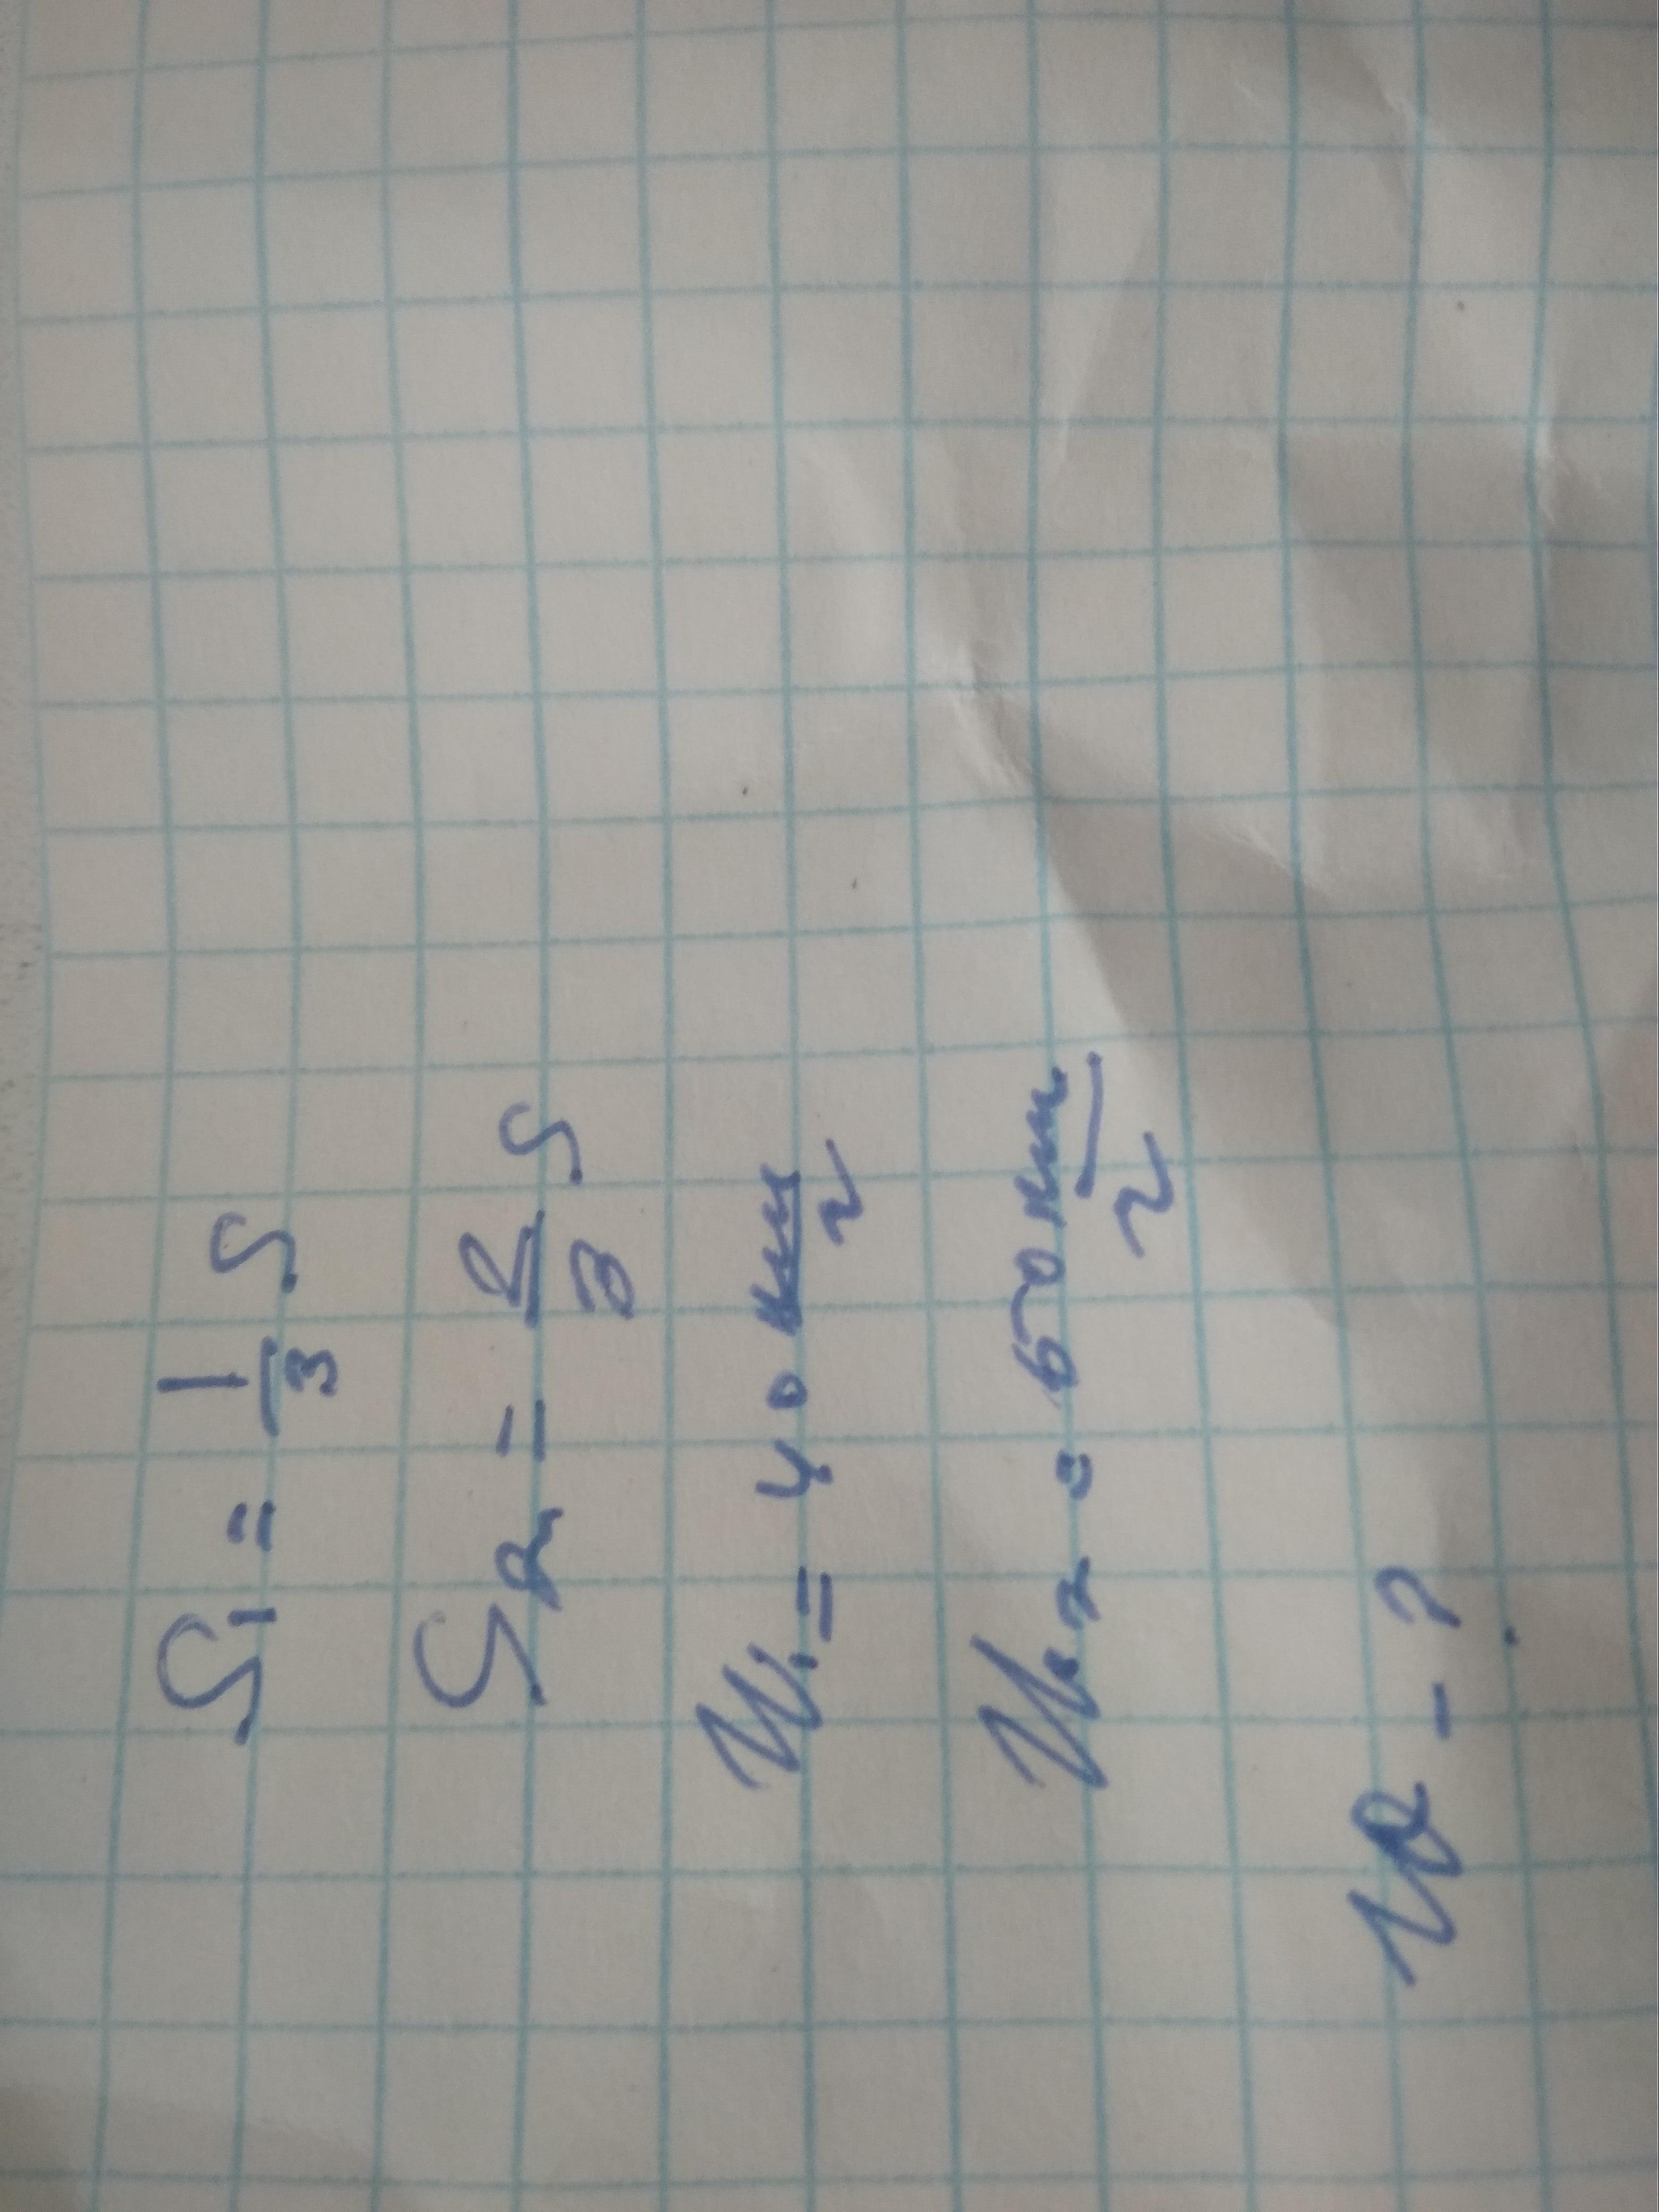 S₁ = 1/3 S
S₂ = 2/3 S
V₁ = 40 км/ч
V₂ = 60 км/ч
V - ?